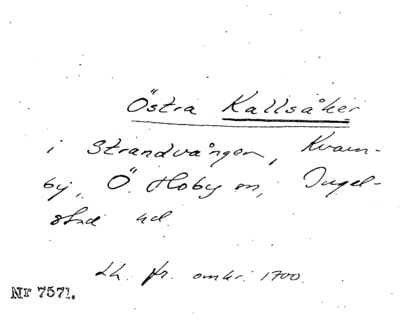 Östra Kallsåker
i Strandvången, Kvarn-
by, Ö. Hoby sn, Ingel-
stad hd
Lh. fr. omkr. 1700.
Nr 7571.